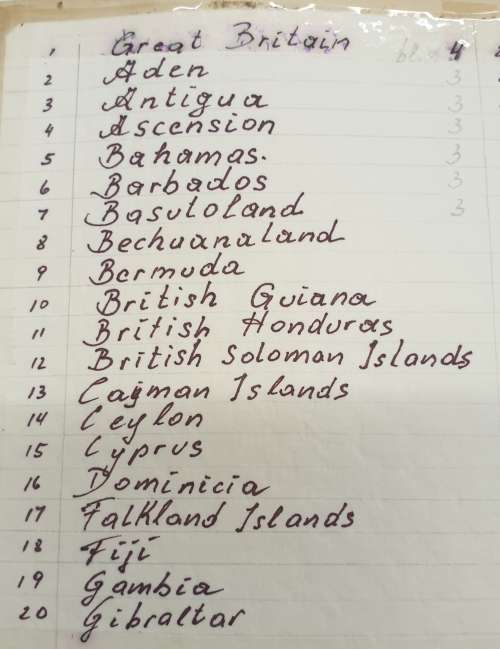 1 Great Britain 4
2 Aden 3
3 Antigua 3
4 Ascension 3
5 Bahamas. 3
6 Barbados 3
7 Basutoland 3
8 Bechuanaland
9 Bermuda
10 British Guiana
11 British Honduras
12 British Soloman Islands
13 Cayman Islands
14 Ceylon
15 Cyprus
16 Dominicia
17 Falkland Islands
18 Fiji
19 Gambia
20 Gibraltar